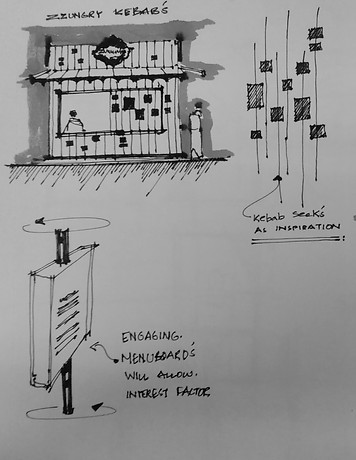 ZZUNGRY KEBAB'S
KEBAB SEEK'S
AS INSPIRATION
ENGAGING.
MENUBOARD'S
WILL ALLOW.
INTEREST FACTOR